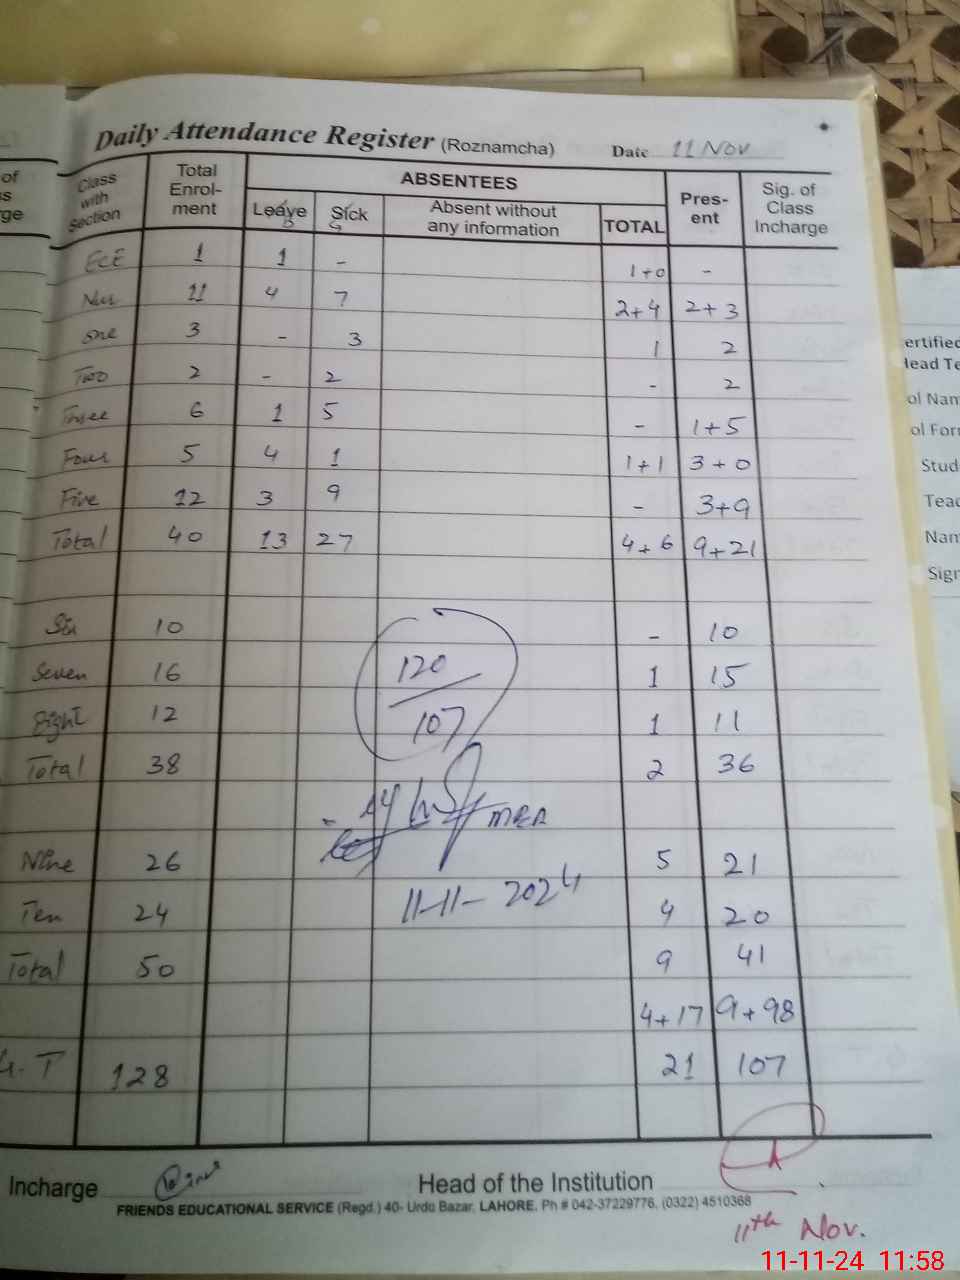 Daily Attendance Register (Roznamcha) Date 11 Nov
Class with Section Total Enrol-ment ABSENTEES Pres-ent Sig. of Class Incharge
Leave B Sick G Absent without any information TOTAL
ECE 1 1 - 1+0 -
Nur 11 4 7 2+4 2+3
one 3 - 3 1 2
Two 2 - 2 - 2
Three 6 1 5 - 1+5
Four 5 4 1 1+1 3+0
Five 12 3 9 - 3+9
Total 40 13 27 4+6 9+21
Six 10 - 10
Seven 16 1 15
Eight 12 1 11
Total 38 2 36
120
107
MEA
Nine 26 5 21
11-11-2024
Ten 24 4 20
Total 50 9 41
4+17 9+98
G.T 128 21 107
Incharge Head of the Institution
FRIENDS EDUCATIONAL SERVICE (Regd.) 40- Urdu Bazar, LAHORE. Ph # 042-37229776, (0322) 4510368
11th Nov.
11-11-24 11:58
of
ge
ertified
ol Nam
ol For
Stud
Teac
Nam
Sign